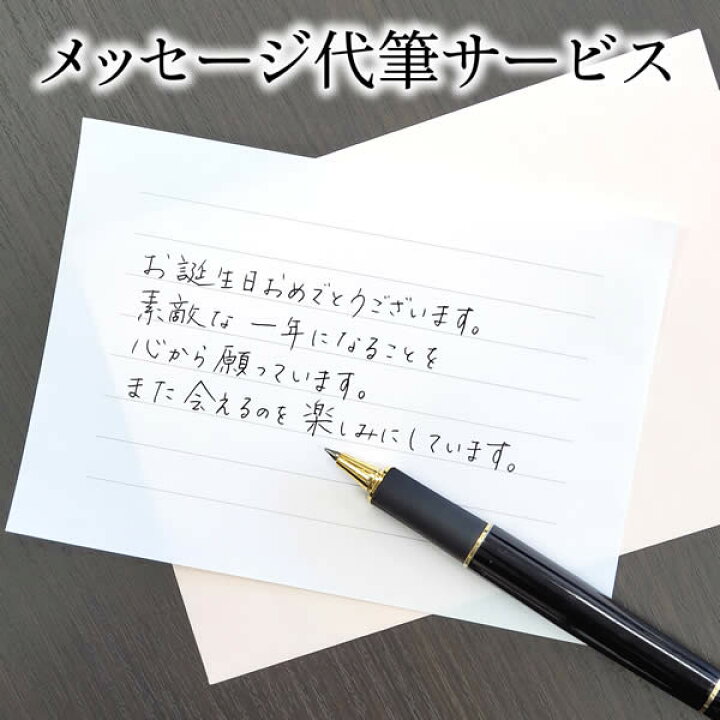 メッセージ代筆サービス
お誕生日おめでとうございます。
素敵な一年になることを
心から願っています。
また会えるのを楽しみにしています。